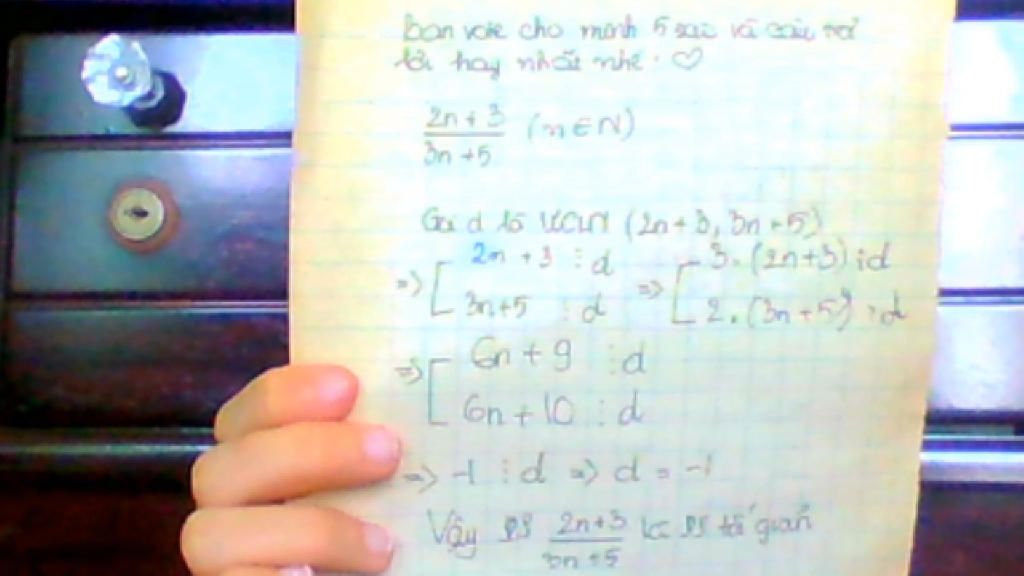 Bạn vote cho mình 5 sao và câu trả
lời hay nhất nhé. ♡
2n+3/3n+5 (n∈N)
Gọi d là ƯCLN (2n+3, 3n+5)
=> [ 2n+3 ⋮ d => [ 3.(2n+3) ⋮ d
3n+5 ⋮ d 2.(3n+5) ⋮ d
=> [ 6n+9 ⋮ d
6n+10 ⋮ d
=> -1 ⋮ d => d = -1
Vậy PS 2n+3/3n+5 là PS tối giản